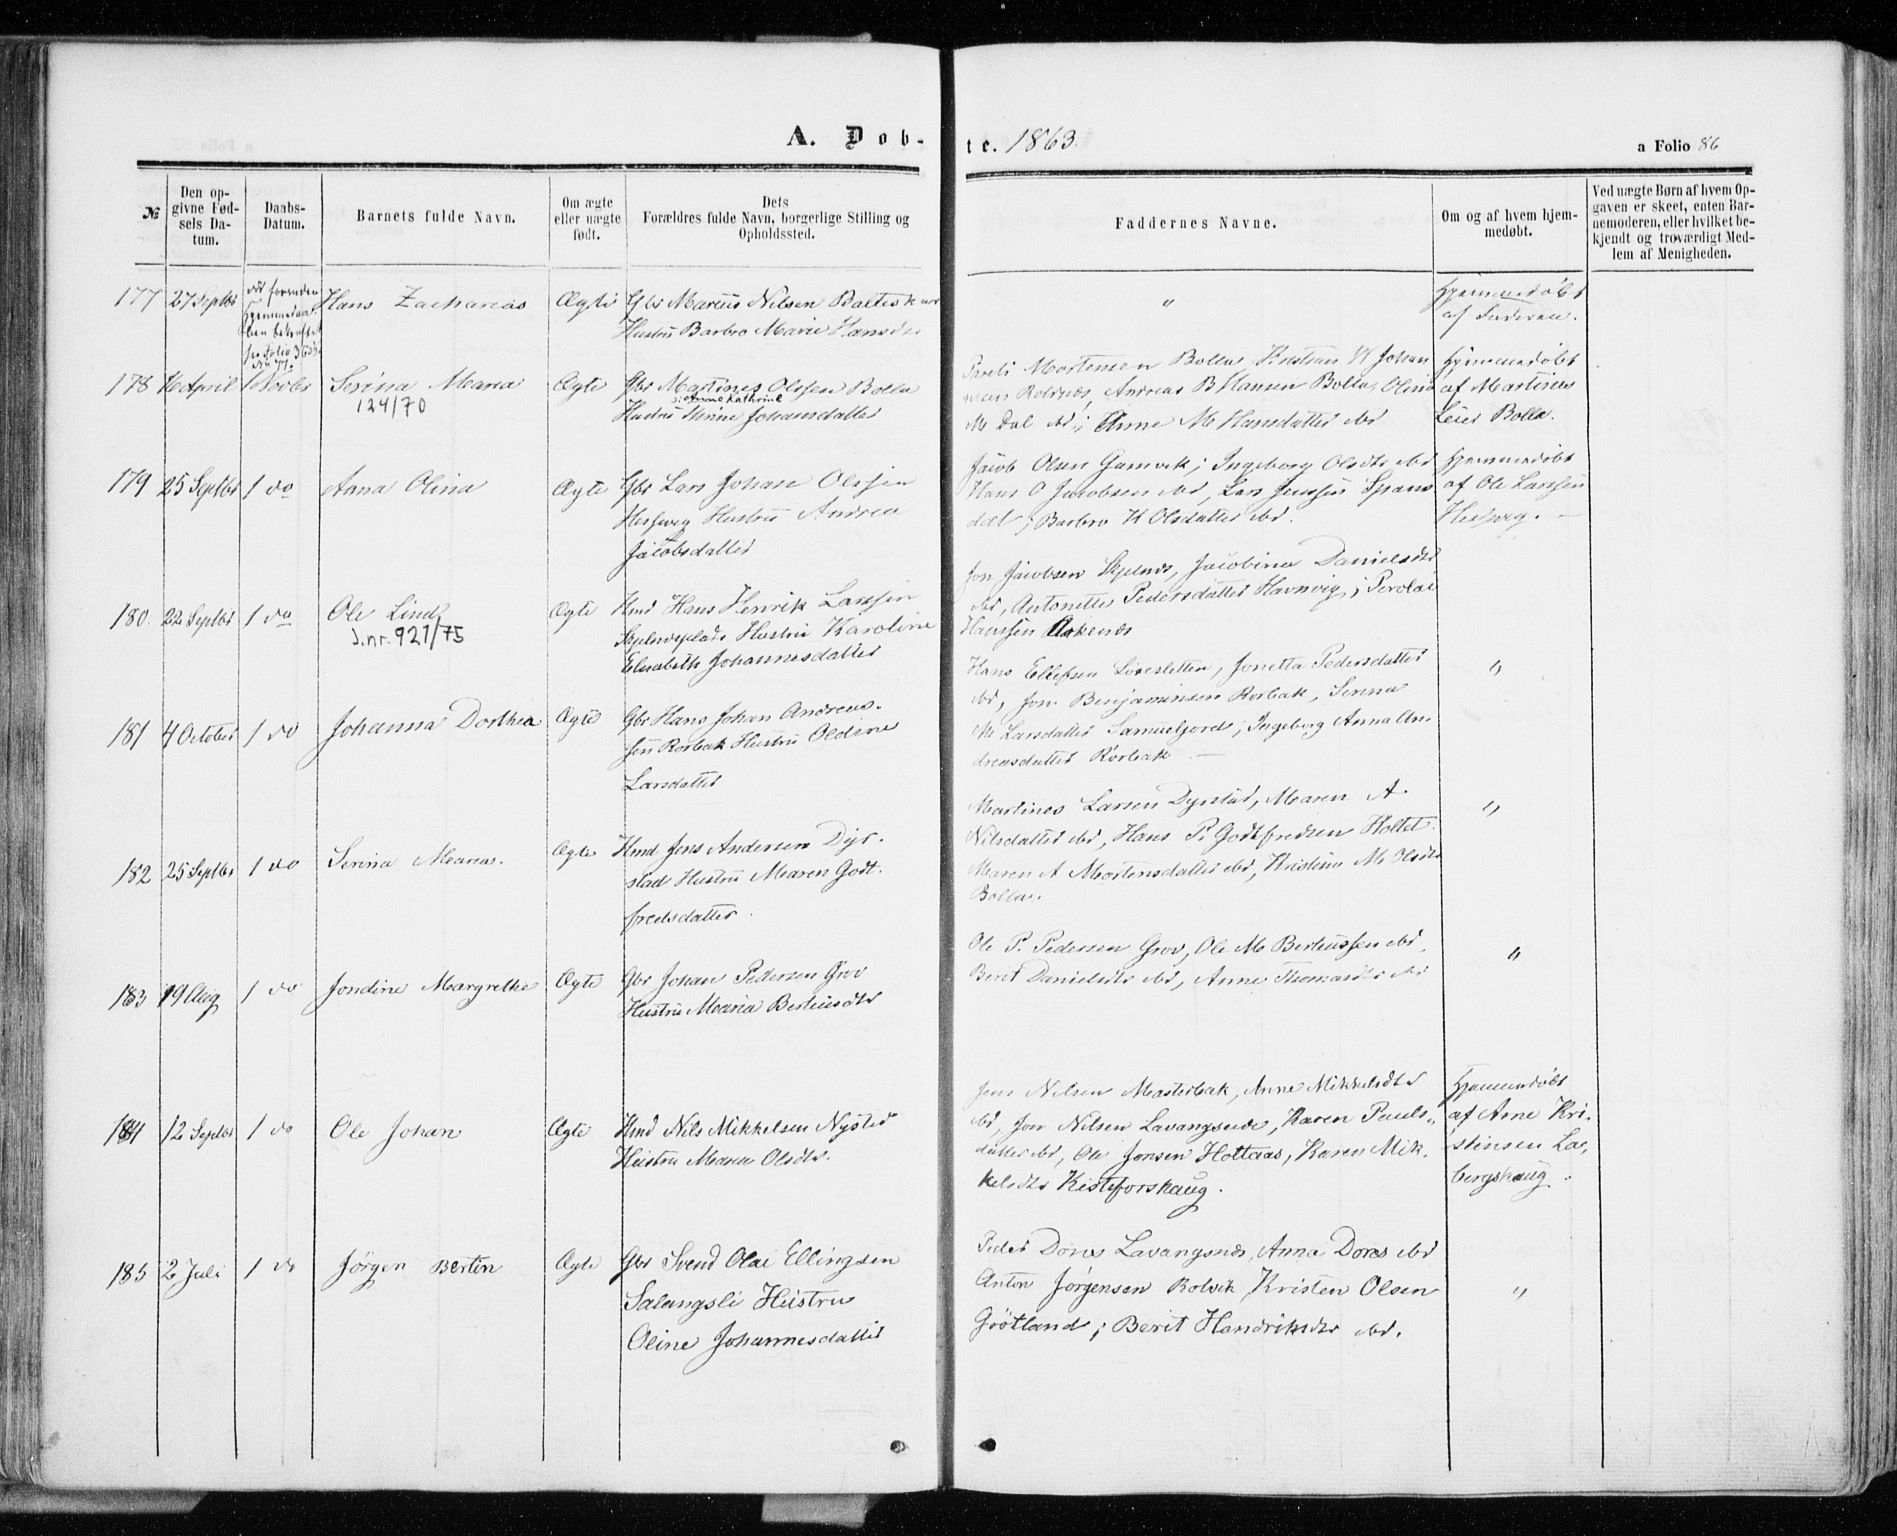 A. Døb-
te. 1863.
a Folio 86
№
Den op-
givne Fød-
sels Da-
tum.
Daabs-
Datum.
Barnets fulde Navn.
Om ægte
eller uægte
født.
Dets
Forældres fulde Navn, borgerlige Stilling og
Opholdssted.
Faddernes Navne.
Om og af hvem hjem-
medøbt.
Ved uægte Børn af hvem Op-
gaven er skeet, enten Bar-
nemoderen, eller hvilket be-
kjendt og troværdigt Med-
lem af Menigheden.
177
27 Septbr
Hans Zacharias
Ægte
Gbr Marius Nilsen Balteskar
Hustru Barbro Marie Hansdtr
"
Hjemmedøbt
af Faderen.
178
16 April
1 Novbr
Serina Maria
124/70
Ægte
Gbr Martines Olssen Bolla
Anne Kathrine
Hustru Johansdatter
Mortensen Bolla Kristian K Johan
Andreas B Hansen Bolla, Olina
M Dal ibd; Anne M Hansdatter ibd
Hjemmedøbt
af Martinus
Leier Bolla.
179
25 Septbr
1 do
Anna Olina
Ægte
Gbr Lars Johan Olssen
Hesjveg Hustru Andrea
Jacobsdatter
Jacob Olsen Gamvik; Ingeborg Olsdtr ibd
Hans O Jacobsen ibd, Lars Jenssen Spans
dal; Barbro K Olsdatter ibd.
Hjemmedøbt
af Ole Larssen
Hesjveg. —
180.
22 Septbr
1 do
Ole Lind
J.nr. 921/75
Ægte
Hmd Hans Henrik Larssen
Hustru Karoline
Elisabeth Johannesdatter
Jon Jacobsen Skjelnes, Jacobina Danielsdtr
ibd, Antonette Pedersdatter Havnvig; Perolai
Hanssen
"
181
4 October
1 do
Johanna Dorthea
Ægte
Gbr Hans Johan Andreas-
sen Rorbak Hustru Oldine
Larsdatter
Hans Ellefsen Løvesletten, Jonetta Pedersdatter
ibd, Jon Benjaminsen Rorbak, Serina
M Larsdatter Samuelfjord; Ingeborg Anna An-
dreasdatter Rörbak —
"
182
25 Septbr
1 do
Serina Maria.
Ægte
Hmd Jens Andersen Dyr-
stad Hustru Maren Godt-
fredsdatter.
Martines Larsen Dyrstad, Maren A.
Nilsdatter ibd, Hans P. Godtfredsen Holtet.
Maren A Mortensdatter ibd, Kristine M Olsdtr
Bolla.
183
19 Aug
1 do
Jondine Margrethe
Ægte
Gbr Johan Pedersen Grov
Hustru Maria Berteusdtr
Ole P. Pedersen Grov, Ole M Berteussen ibd.
Berit Danielsdtr ibd, Anne Thomasdtr ibd
"
184
12 Septbr
1 do
Ole Johan
Ægte
Hmd Nils Mikkelsen Nysted
Hustru Maria Olsdtr.
Jens Nilsen Mosterbak, Anne Mikkelsdtr
ibd, Jon Nilsen Lavangseide, Karen Pauls-
datter ibd, Ole Jonsen Holtaas, Karen Mik-
kelsdtr Kisteforshaug.
Hjemmedøbt
af Arne Kri-
stensen La-
bergshaug.
185
2 Juli
1 do
Jørgen Bertin
Ægte
Gbr Svend Olai Ellingsen
Salangsli Hustru
Oline Johannesdatter
Peder Dores Lavangsnes, Anna Dores ibd
Anton Jørgensen Rotvik, Kristen Olsen
Grötland; Berit Hendriksdtr ibd.
"